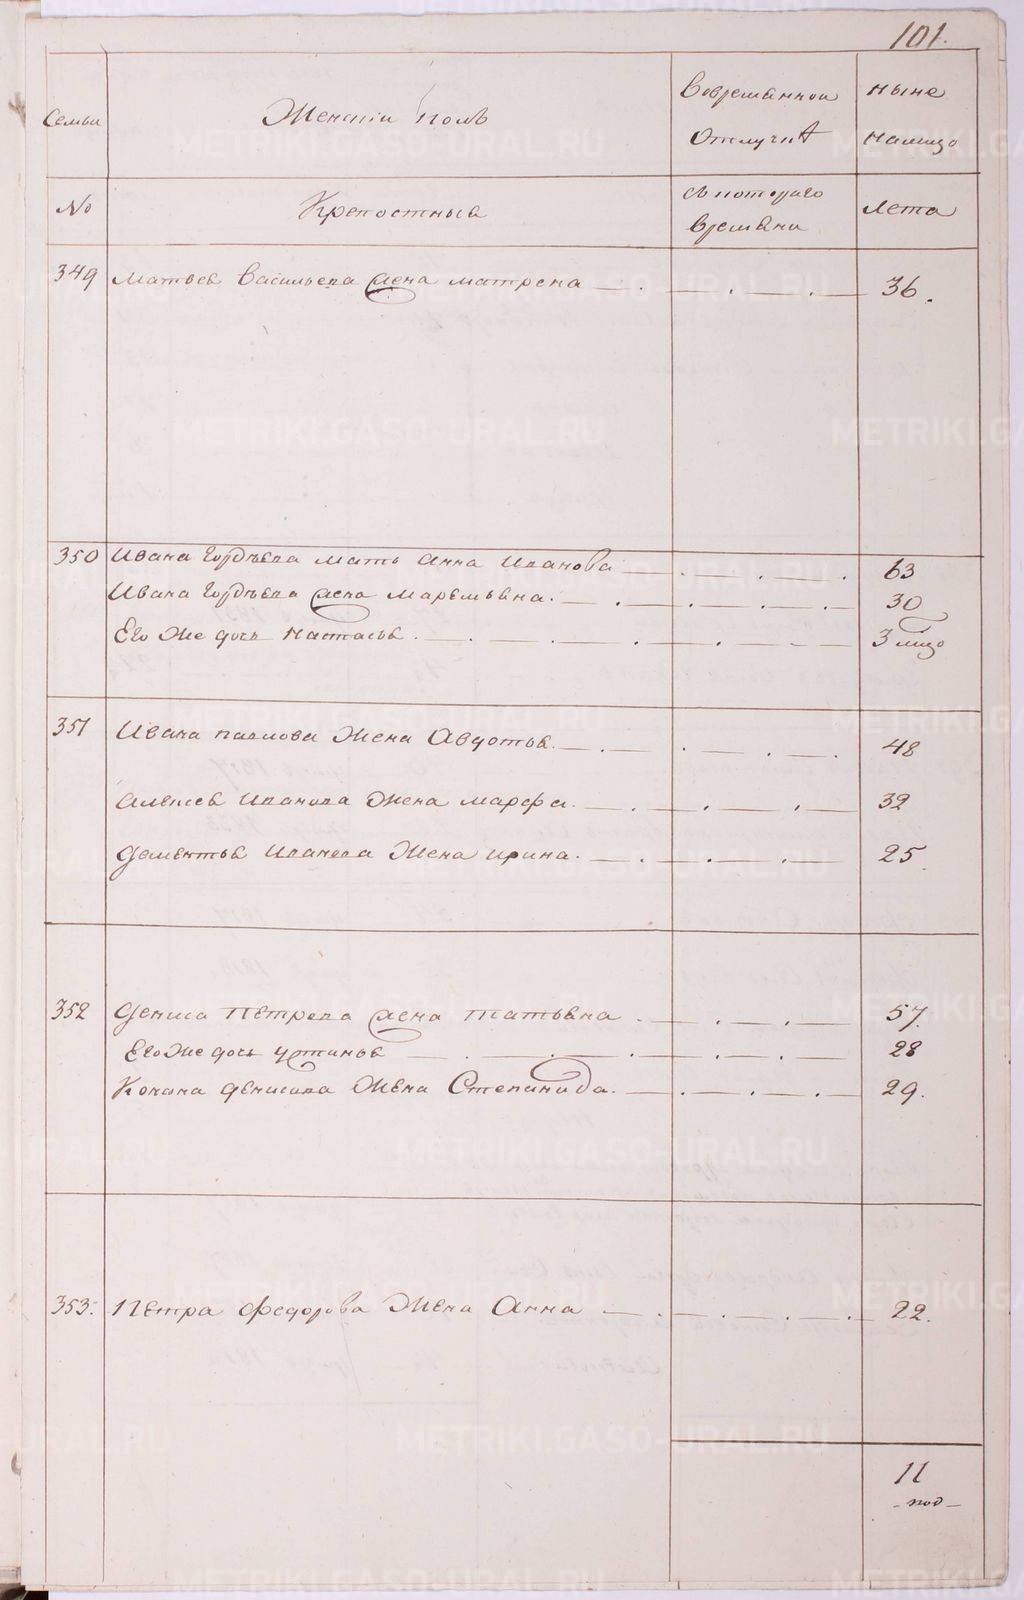 101.
Семьи Женскiй полъ Вовременной ныне
Отлучкѣ налицо
No Крепостныя съ котораго Лета
времяни
349 Матвея Васильева жена матрена 36.
350 Ивана Гордѣева мать Анна Иванова 63
Ивана Гордѣева жена Маремьяна. 30
Его же дочь Настасья 3
351 Ивана павлова жена Авдотья 48
Алексея Иванова жена марфа. 32
дементья Иванова жена ирина. 25.
352 дениса Петрова жена татьяна 57.
Его же дочь устинья 28
Конона денисова жена Степанида. 29.
353. Петра федорова жена Анна 22.
11
METRIKI.GASO-URAL.RU